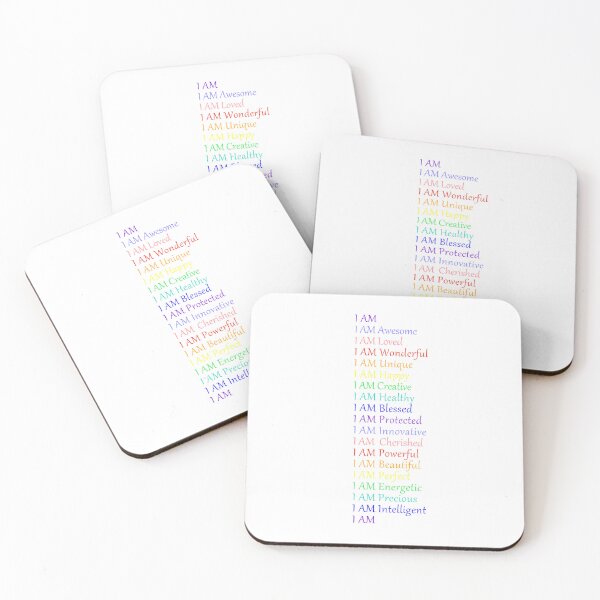 I AM
I AM Awesome
I AM Loved
I AM Wonderful
I AM Unique
I AM Happy
I AM Creative
I AM Healthy
I AM
I AM Awesome
I AM Loved
I AM Wonderful
I AM Unique
I AM Happy
I AM Creative
I AM Healthy
I AM Blessed
I AM Protected
I AM Innovative
I AM Cherished
I AM Powerful
I AM Beautiful
I AM
I AM Awesome
I AM Loved
I AM Wonderful
I AM Unique
I AM Happy
I AM Creative
I AM Healthy
I AM Blessed
I AM Protected
I AM Innovative
I AM Cherished
I AM Powerful
I AM Beautiful
I AM Perfect
I AM
I AM
I AM
I AM
I AM
I AM Awesome
I AM Loved
I AM Wonderful
I AM Unique
I AM Happy
I AM Creative
I AM Healthy
I AM Blessed
I AM Protected
I AM Innovative
I AM Cherished
I AM Powerful
I AM Beautiful
I AM Perfect
I AM Energetic
I AM Precious
I AM Intelligent
I AM